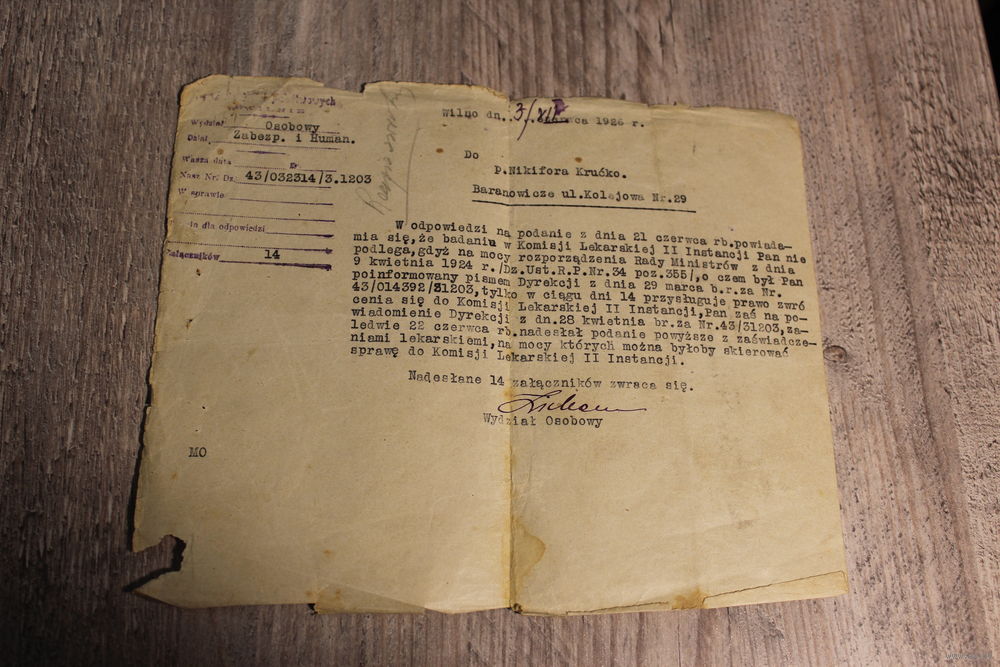 Wilno dn. 3/VII czerwca 1926 r.
Wydział Osobowy
Dział Zabezp. i Human.
Wasza data
Nasz Nr. Dz. 43/032314/3.1203
W sprawie
dla odpowiedzi
Załączników 14
Do
P.Nikifora Krućko.
Baranowicze ul.Kolejowa Nr.29
W odpowiedzi na podanie z dnia 21 czerwca rb.powiada-
mia się,że badaniu w Komisji Lekarskiej II Instancji Pan nie
podlega,gdyż na mocy rozporządzenia Rady Ministrów z dnia
9 kwietnia 1924 r./Dz.Ust.R.P.Nr.34 poz.355/,o czem był Pan
poinformowany pismem Dyrekcji z dnia 29 marca b.r.za Nr.
43/014392/31203,tylko w ciągu dni 14 przysługuje prawo zwró
cenia się do Komisji Lekarskiej II Instancji,Pan zaś na po-
wiadomienie Dyrekcji z dn.28 kwietnia br.za Nr.43/31203,za-
ledwie 22 czerwca rb.nadesłał podanie powyższe z zaświadcze-
niami lekarskiemi,na mocy których można byłoby skierować
sprawę do Komisji Lekarskiej II Instancji.
Nadesłane 14 załączników zwraca się.
Wydział Osobowy
MO